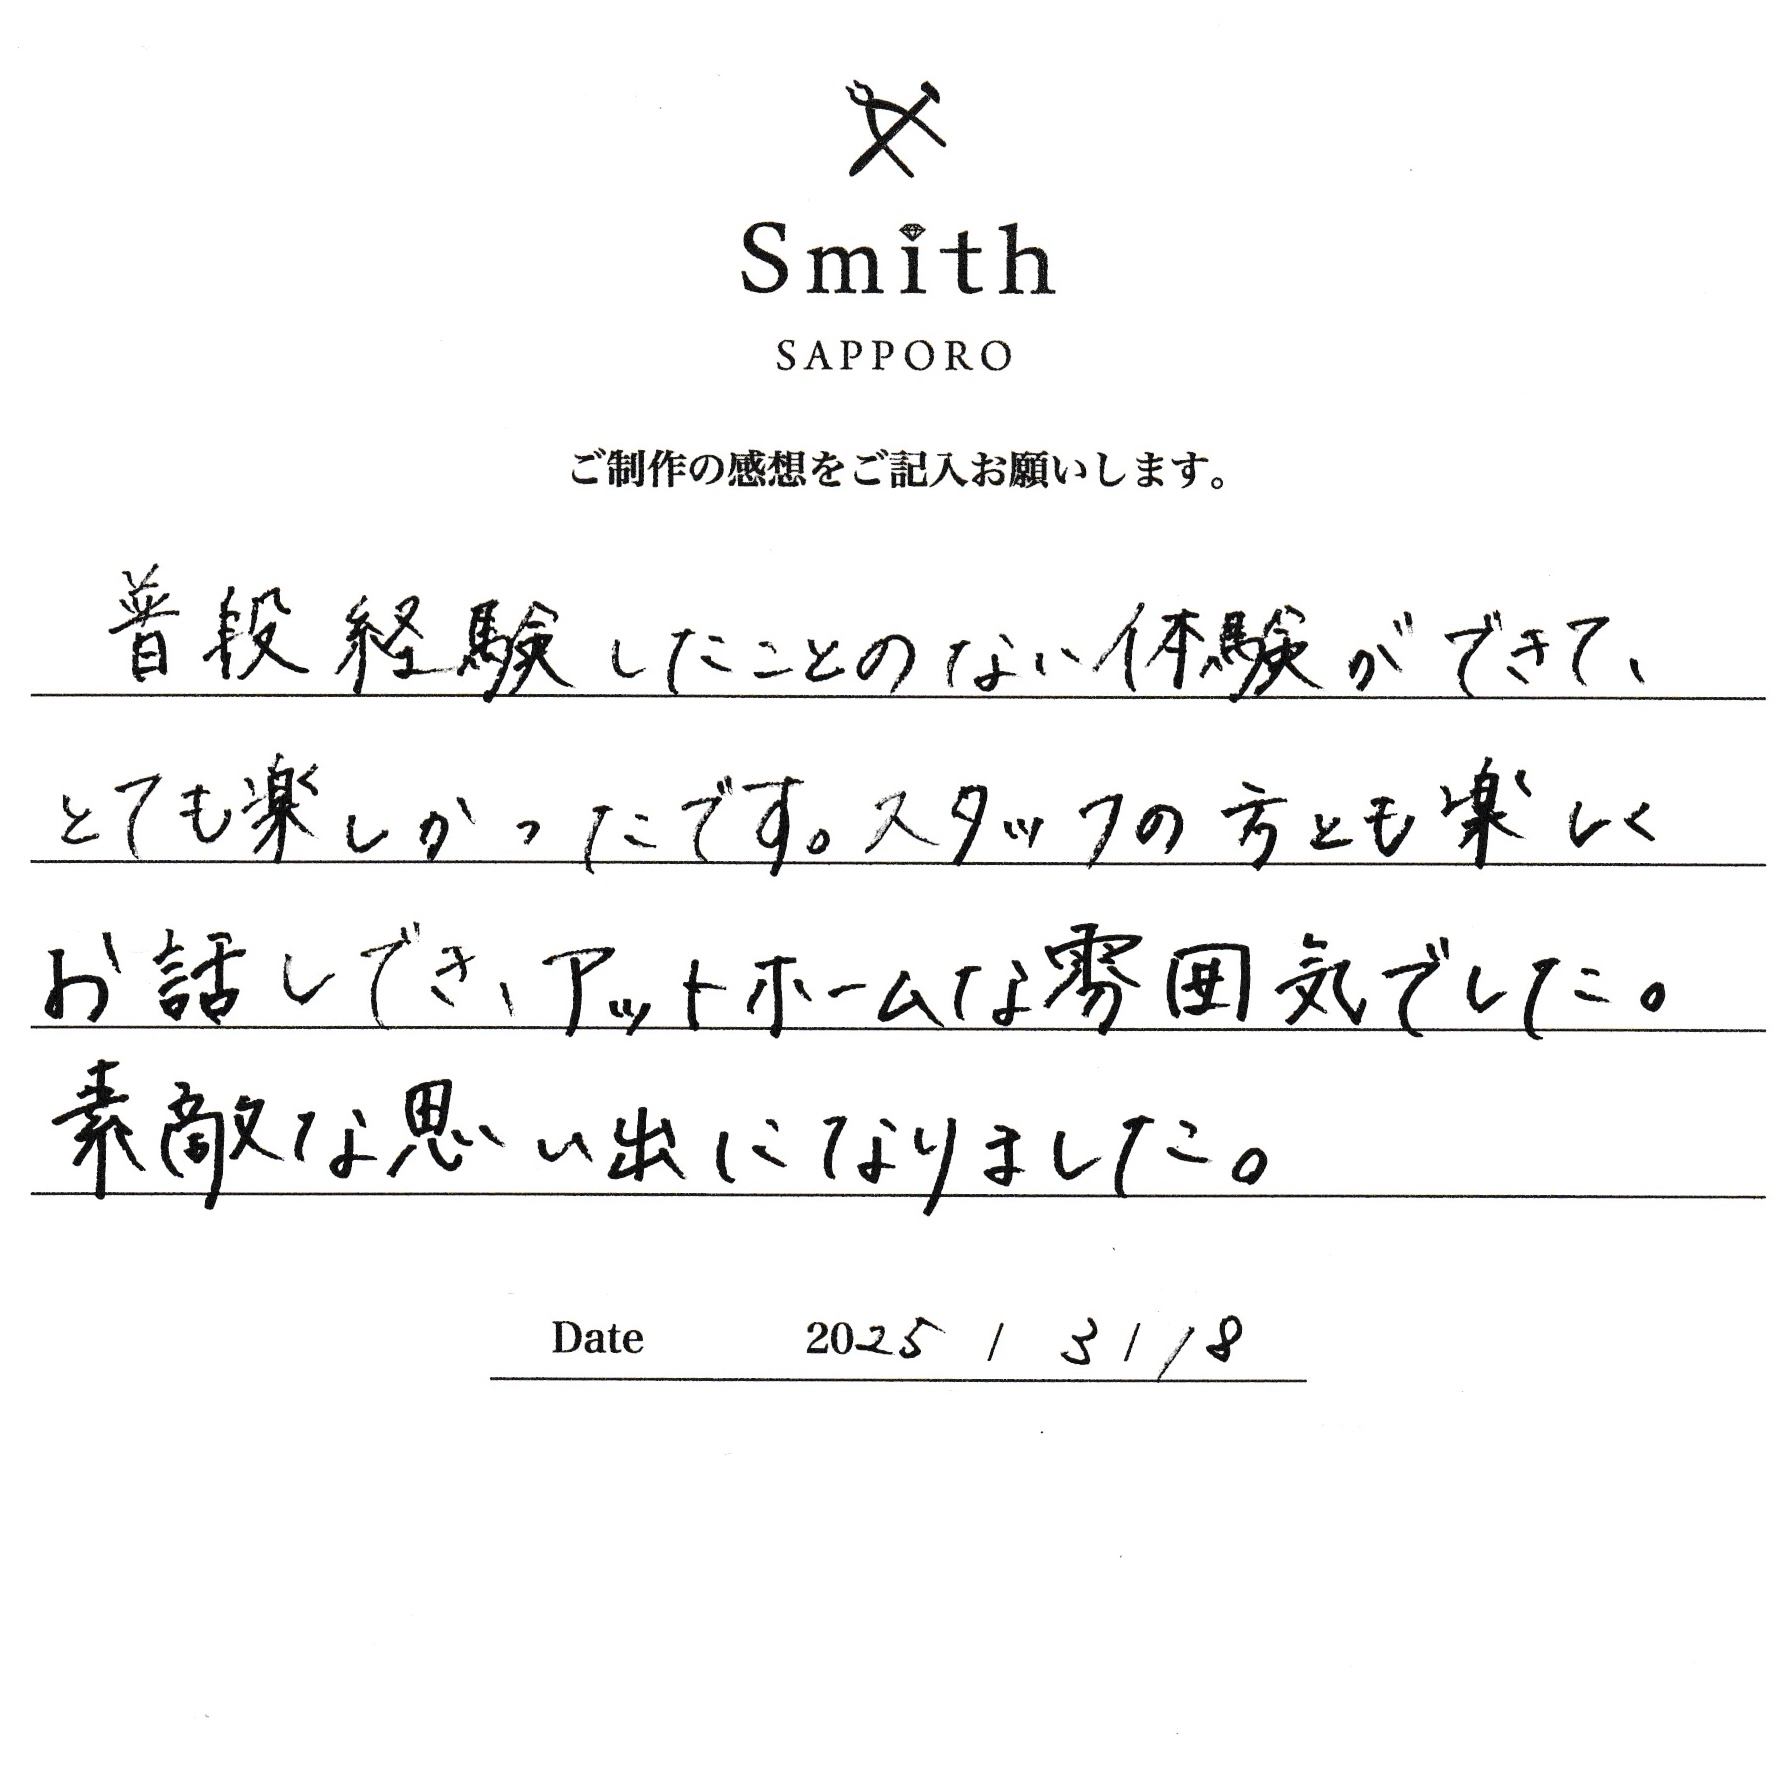 Smith
SAPPORO
ご制作の感想をご記入お願いします。
普段経験したことのない体験ができて、
とても楽しかったです。スタッフの方とも楽しく
お話しでき、アットホームな雰囲気でした。
素敵な思い出になりました。
Date 2025 / 3 / 18